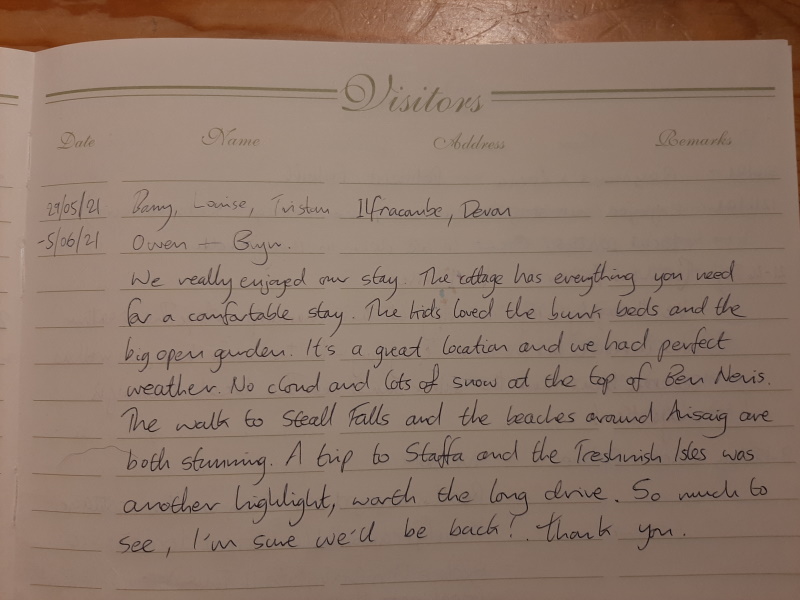 Visitors
Date Name Address Remarks
29/05/21 Barry, Louise, Tristan Ilfracombe, Devon
-5/06/21 Owen + Bryn.
We really enjoyed our stay. The cottage has everything you need
for a comfortable stay. The kids loved the bunk beds and the
big open garden. It's a great location and we had perfect
weather. No cloud and lots of snow at the top of Ben Nevis.
The walk to Steall Falls and the beaches around Arisaig are
both stunning. A trip to Staffa and the Treshnish Isles was
another highlight, worth the long drive. So much to
see, I'm sure we'll be back! Thank you.